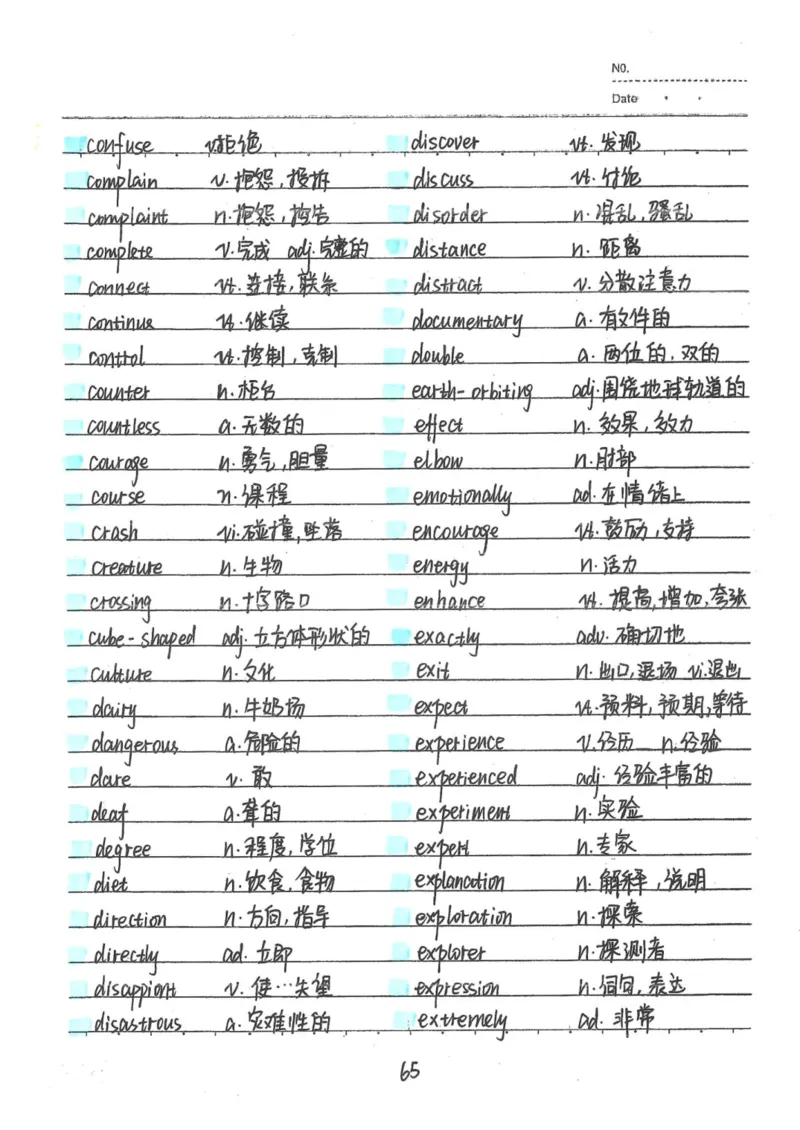 NO.
Date
confuse v.拒绝 discover vt. 发现
complain v. 抱怨,投拆 discuss vt. 讨论
complaint n.抱怨,控告 disorder n. 混乱,骚乱
complete v.完成 adj.完整的 distance n. 距离
connect vt.连接,联系 distract v. 分散注意力
continue vt.继续 documentary a. 有文件的
control vt.控制,克制 double a. 两位的,双的
counter n.柜台 earth-orbiting adj.围绕地球轨道的
countless a.无数的 effect n. 效果,效力
courage n.勇气,胆量 elbow n.肘部
course n.课程 emotionally ad.在情绪上
crash vi.碰撞,坠落 encourage vt.鼓励,支持
creature n.生物 energy n.活力
crossing n.十字路口 enhance vt.提高,增加,夸张
cube-shaped adj.立方体形状的 exactly adv.确切地
culture n.文化 exit n.出口,退场 vi.退出
dairy n.牛奶场 expect vt.预料,预期,等待
dangerous a.危险的 experience v.经历 n.经验
dare v.敢 experienced adj.经验丰富的
deaf a.聋的 experiment n.实验
degree n.程度,学位 expert n.专家
diet n.饮食,食物 explanation n.解释,说明
direction n.方向,指导 exploration n.探索
directly ad.立即 explorer n.探测者
disappiont v.使…失望 expression n.词句,表达
disastrous a.灾难性的 extremely ad.非常
65